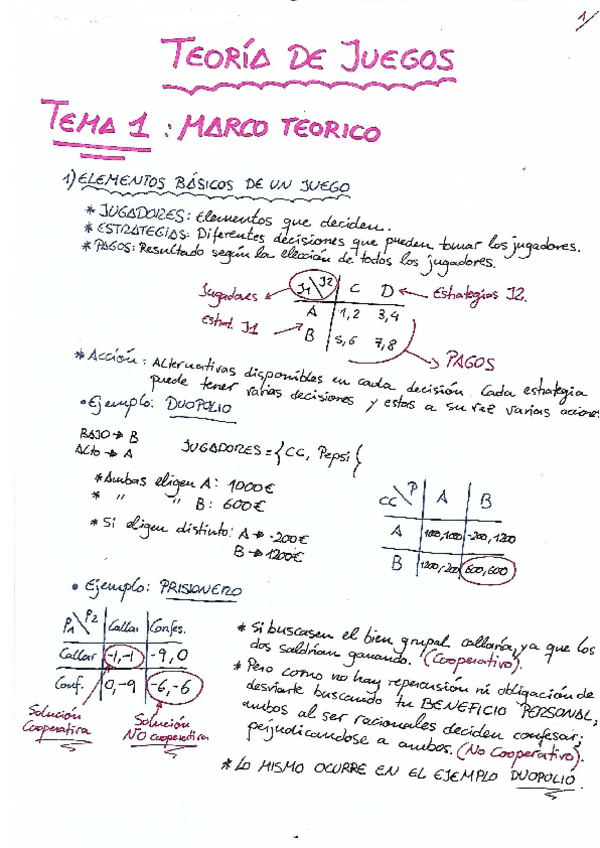 1/
TEORÍA DE JUEGOS
TEMA 1 : MARCO TEORICO
1) ELEMENTOS BÁSICOS DE UN JUEGO
* JUGADORES: Elementos que deciden.
* ESTRATEGIAS: Diferentes decisiones que pueden tomar los jugadores.
* PAGOS: Resultado según la elección de todos los jugadores.
Jugadores J1 \ J2 C D Estrategias J2.
Estrat. J1 A 1,2 3,4
B 5,6 7,8
PAGOS
* Acción: Alternativas disponibles en cada decisión. Cada estrategia
puede tener varias decisiones y estas a su vez varias accion
• Ejemplo: DUOPOLIO
BAJO → B
ALTO → A
JUGADORES = { CC, Pepsi {
* Ambas eligen A: 1000€
* " " B: 600€
* Si eligen distinto: A → -200€
B → 1200€
CC \ P A B
A 1000,1000 -200,1200
B 1200,-200 600,600
• Ejemplo: PRISIONERO
P1 \ P2 Callar Confes.
Callar -1,-1 -9,0
Conf. 0,-9 -6,-6
Solución Cooperativa
Solución NO cooperativa
* Si buscasen el bien grupal callaría, ya que los
dos saldrían ganando. (Cooperativo).
* Pero como no hay repercusión ni obligación de
desviarte buscando tu BENEFICIO PERSONAL,
ambos al ser racionales deciden confesar;
perjudicandose a ambos. (No Cooperativo).
* LO MISMO OCURRE EN EL EJEMPLO DUOPOLIO